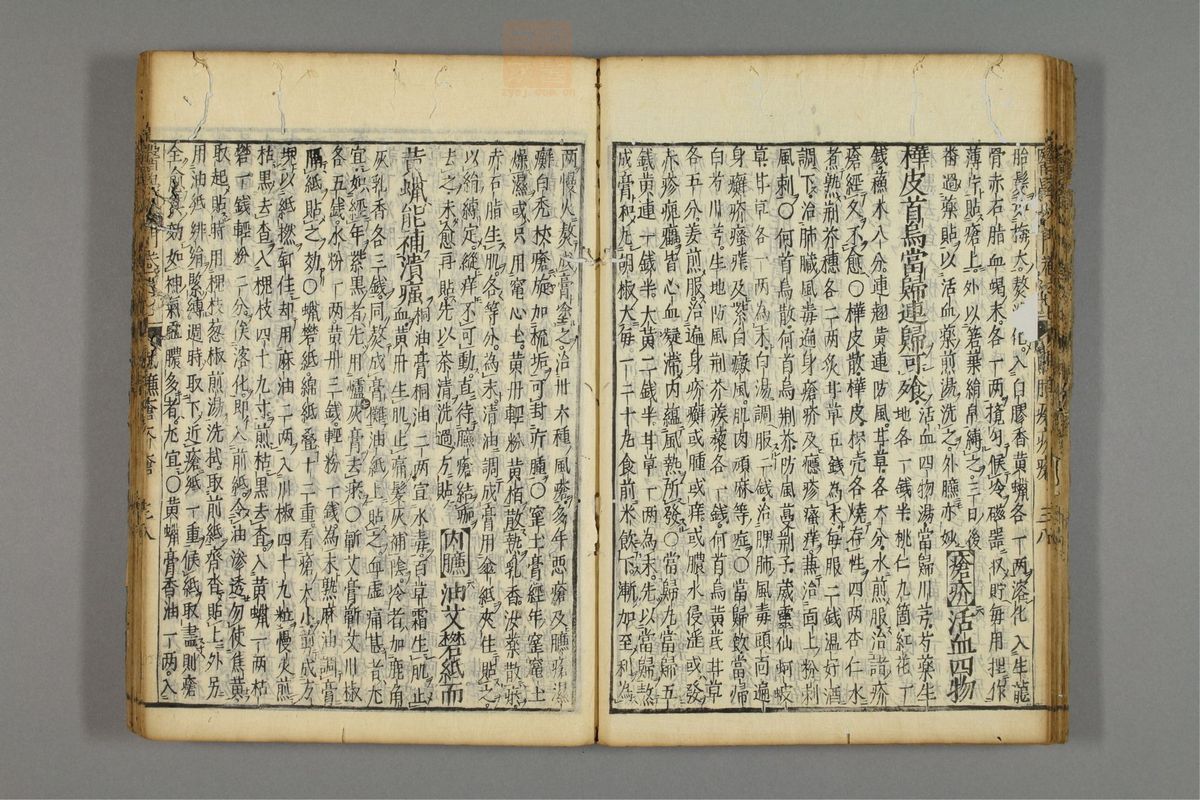 骨赤石脂血竭末各一兩攪匀候冷磁器収貯每用捏作
薄片貼瘡上外以箬葉絹帛縛之三日後
番過藥貼以活血藥煎湯洗之外臁亦妙【瘡疥】活血四物
樺皮首烏當歸連歸可飱活血四物湯當歸川芎芍藥生
地各一錢半桃仁九箇紅花一
錢蘇木八分連翹黃連防風甘草各六分水煎服治諸疥
瘡經久不愈〇樺皮散樺皮枳壳各燒存性四兩杏仁水
煮熟荊芥穗各二兩炙甘草五錢為末每服二錢溫好酒
調下治肺臟風毒遍身瘡疥及癮疹瘙痒兼治面上粉刺
風刺〇何首烏散何首烏荊芥防風蔓荊子威靈仙蚵蚾
草甘草各一兩為末白湯調服一錢治脾肺風毒頭面遍
身癬疥瘙痒及紫白癜風肌肉頑麻等症〇當歸飲當歸
白芍川芎生地防風荊芥蒺藜各一錢何首烏黃芪甘草
各五分姜煎服治遍身疥癬或腫或痒或膿水侵淫或發
赤疹瘢癘皆心血凝滯內蘊風熱所發〇當歸丸當歸五
錢黃連一錢半大黃二錢半甘草一兩為末先以當歸熬
成膏和丸胡椒大每一二十丸食前米飲下漸加至利為
兩慢火熬成膏
癬白禿杖瘡
燥濕或只用窰心土黃丹輕粉黃栢散熱乳香沒藥散瘀
赤石脂生肌各等分為末清油調成膏用傘紙夾住貼之
以絹縛定縱痒不可動直待臁瘡結痂
去之未愈再貼先以茶清洗過方貼【內臁】油艾礬紙而
黃蝋能補潰瘍桐油膏桐油二兩宣水毒百草霜生肌止
血黃丹生肌止痛髮灰補陰冷者加鹿角
灰乳香各三錢同熬成膏攤油紙上貼之血虛痛甚者尤
宜如經年紫黑者先用爐灰膏去瘀〇蘄艾膏蘄艾川椒
各五錢水粉一兩黃丹三錢輕粉一錢為末熟麻油調膏
隔紙貼之効〇蝋礬紙綿紙疊十二重看瘡大小剪成方
塊以紙撚釘住却用麻油二兩入川椒四十九粒慢火煎
枯黑去査入槐枝四十九寸煎枯黑去査入黃蝋一兩枯
礬一錢輕粉二分候溶化即入前紙令油滲透勿使焦黃
取起貼時用槐枝葱椒煎湯洗拭取前紙齊沓貼上外另
用油紙緋絹緊縛週時取下近瘡紙一重候紙取盡則瘡
全愈矣効如神氣盛膿多者尤宜〇黃蝋膏香油一兩入